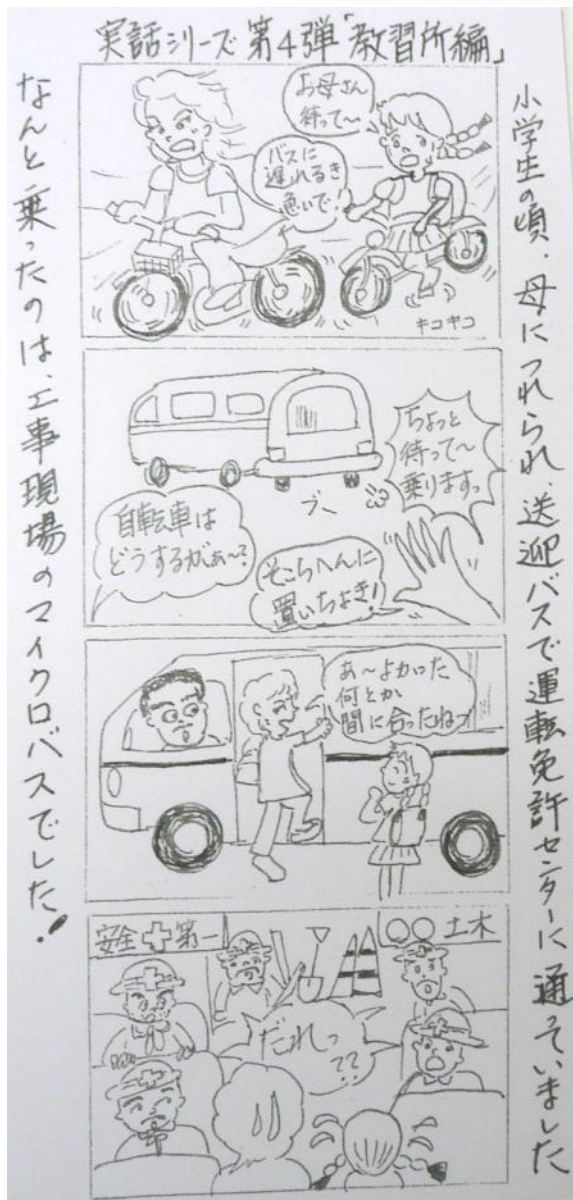 実話シリーズ第4弾「教習所編」
小学生の頃、母につれられ、送迎バスで運転免許センターに通っていました
お母さん
待って〜
バスに
遅れるき
急いで!
キコキコ
ちょっと
待って〜
乗りますっ
ブー
自転車は
どうするがぁ〜?
そこらへんに
置いちょき!
あ〜よかった
何とか
間に合ったねっ
安全✚第一
○○土木
だれっ
??
なんと乗ったのは、工事現場のマイクロバスでした!